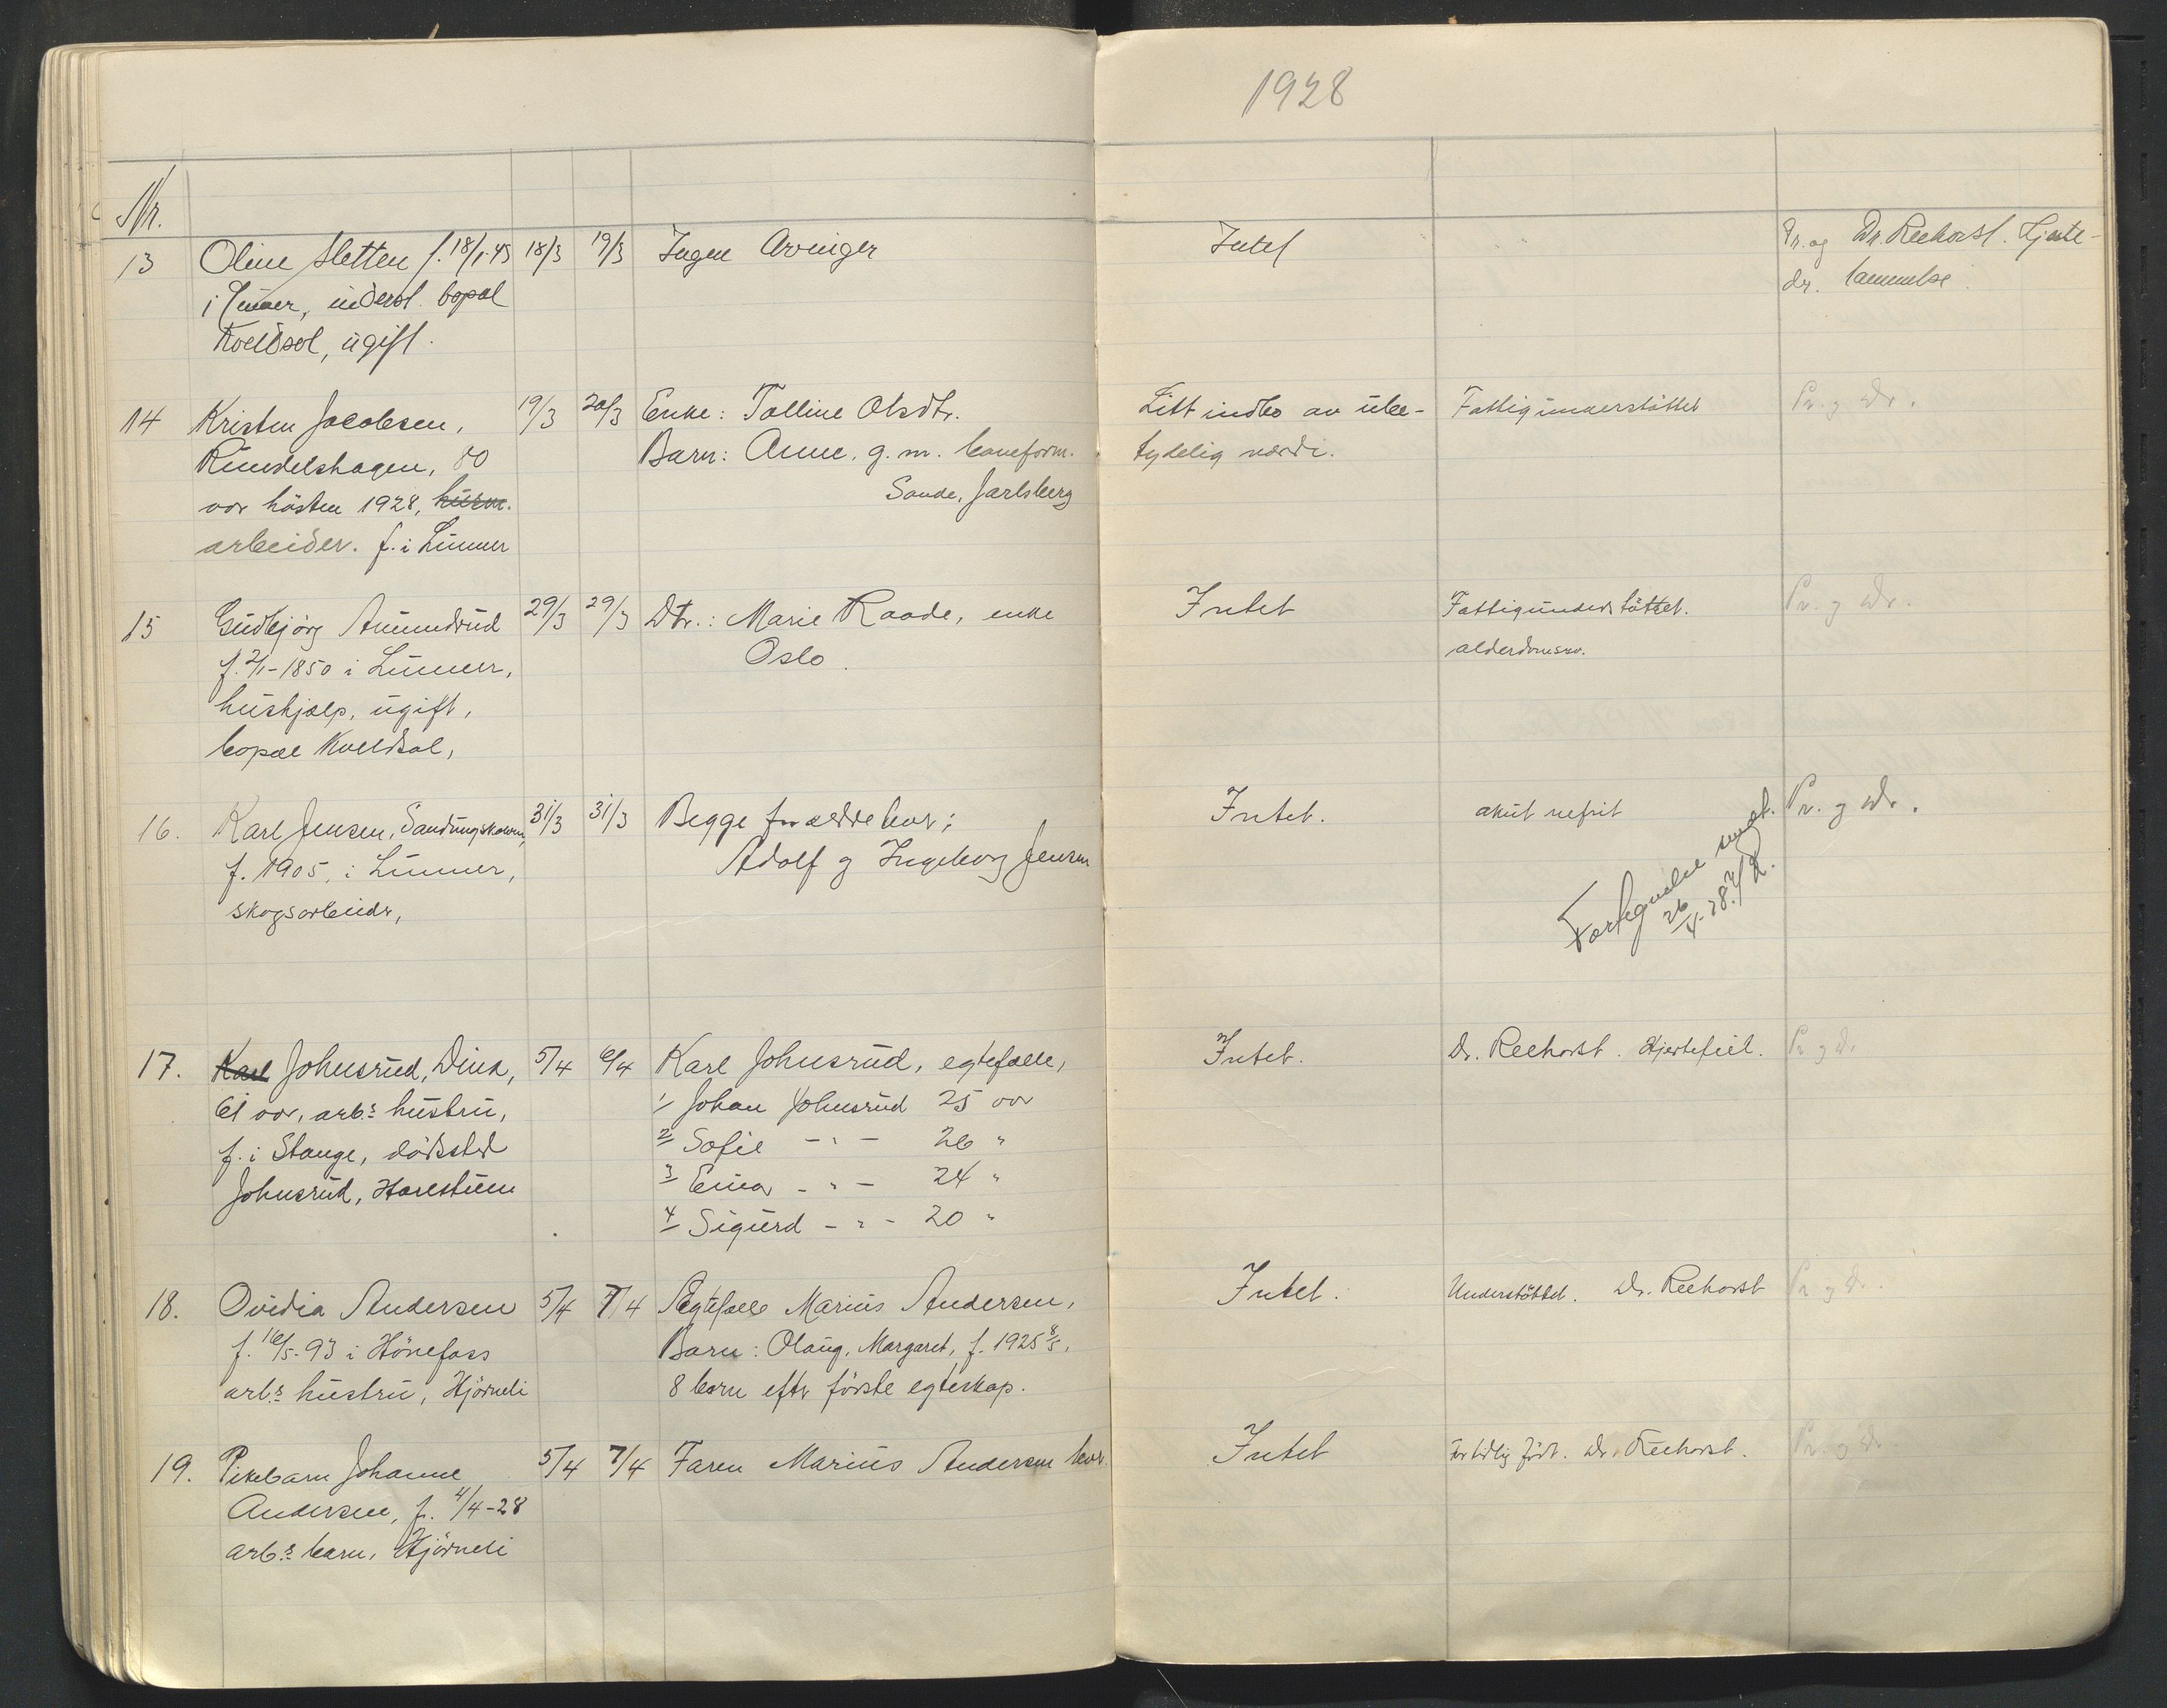 1928
Nr.
13 Oline Sletten f. 18/1-43 18/3 19/3 Ingen Arvinger Intet Pr. og Dr. Reehorst. Hjerte-
i Lunner, underst. bopæl dr. lammelse
Kveldsol, ugift.
14 Kristen Jacobsen, 19/3 20/3 Enke: Talline Olsdtr. Litt indbo av ube- Fattigunderstöttet Pr. og Dr.
Rundelshagen, 80 Barn: Anne, g. m. baneform. tydelig værdi.
aar hösten 1928, Sande, Jarlsberg
arbeider. f. i Lunner
15 Gudbjörg Amundrud 29/3 29/3 Dtr.: Marie Raade, enke Intet Fattigunderstöttet. Pr. og Dr.
f. 2/1-1850 i Lunner, Oslo. alderdomssv.
hushjælp, ugift,
bopæl Kveldsol,
16. Karl Jensen, 31/3 31/3 Begge forældre lever; Intet. akut nefrit Pr. og Dr.
f. 1905, i Lunner, Adolf og Ingeborg Jensen
skogsarbeider,
Fortegnelse sendt.
26/4-28.
17. Karl Johnsrud, Dina, 5/4 6/4 Karl Johnsrud, egtefælle, Intet. Dr. Reehorst. Hjertefeil. Pr og Dr
61 aar, arb.s hustru, 1/ Johan Johnsrud 25 aar
f. i Stange, dödssted 2 Sofie - " - 26 "
Johnsrud, Harestuen 3 Einar - " - 24 "
4 Sigurd - " - 20 "
18. Ovidia Andersen 5/4 7/4 Ægtefælle Marius Andersen, Intet. Understöttet. Dr. Reehorst Pr og Dr.
f. 16/5-93 i Hönefoss Barn: Olaug, Margaret, f. 1925 8/5,
arb.s hustru, Hjörneli 8 barn efter förste egteskap.
19. Pikebarn Johanne 5/4 7/4 Faren Marius Andersen lever. Intet For tidlig födt. Dr. Reehorst. Pr. og Dr
Andersen, f. 4/4-28
arb.s barn, Hjörneli